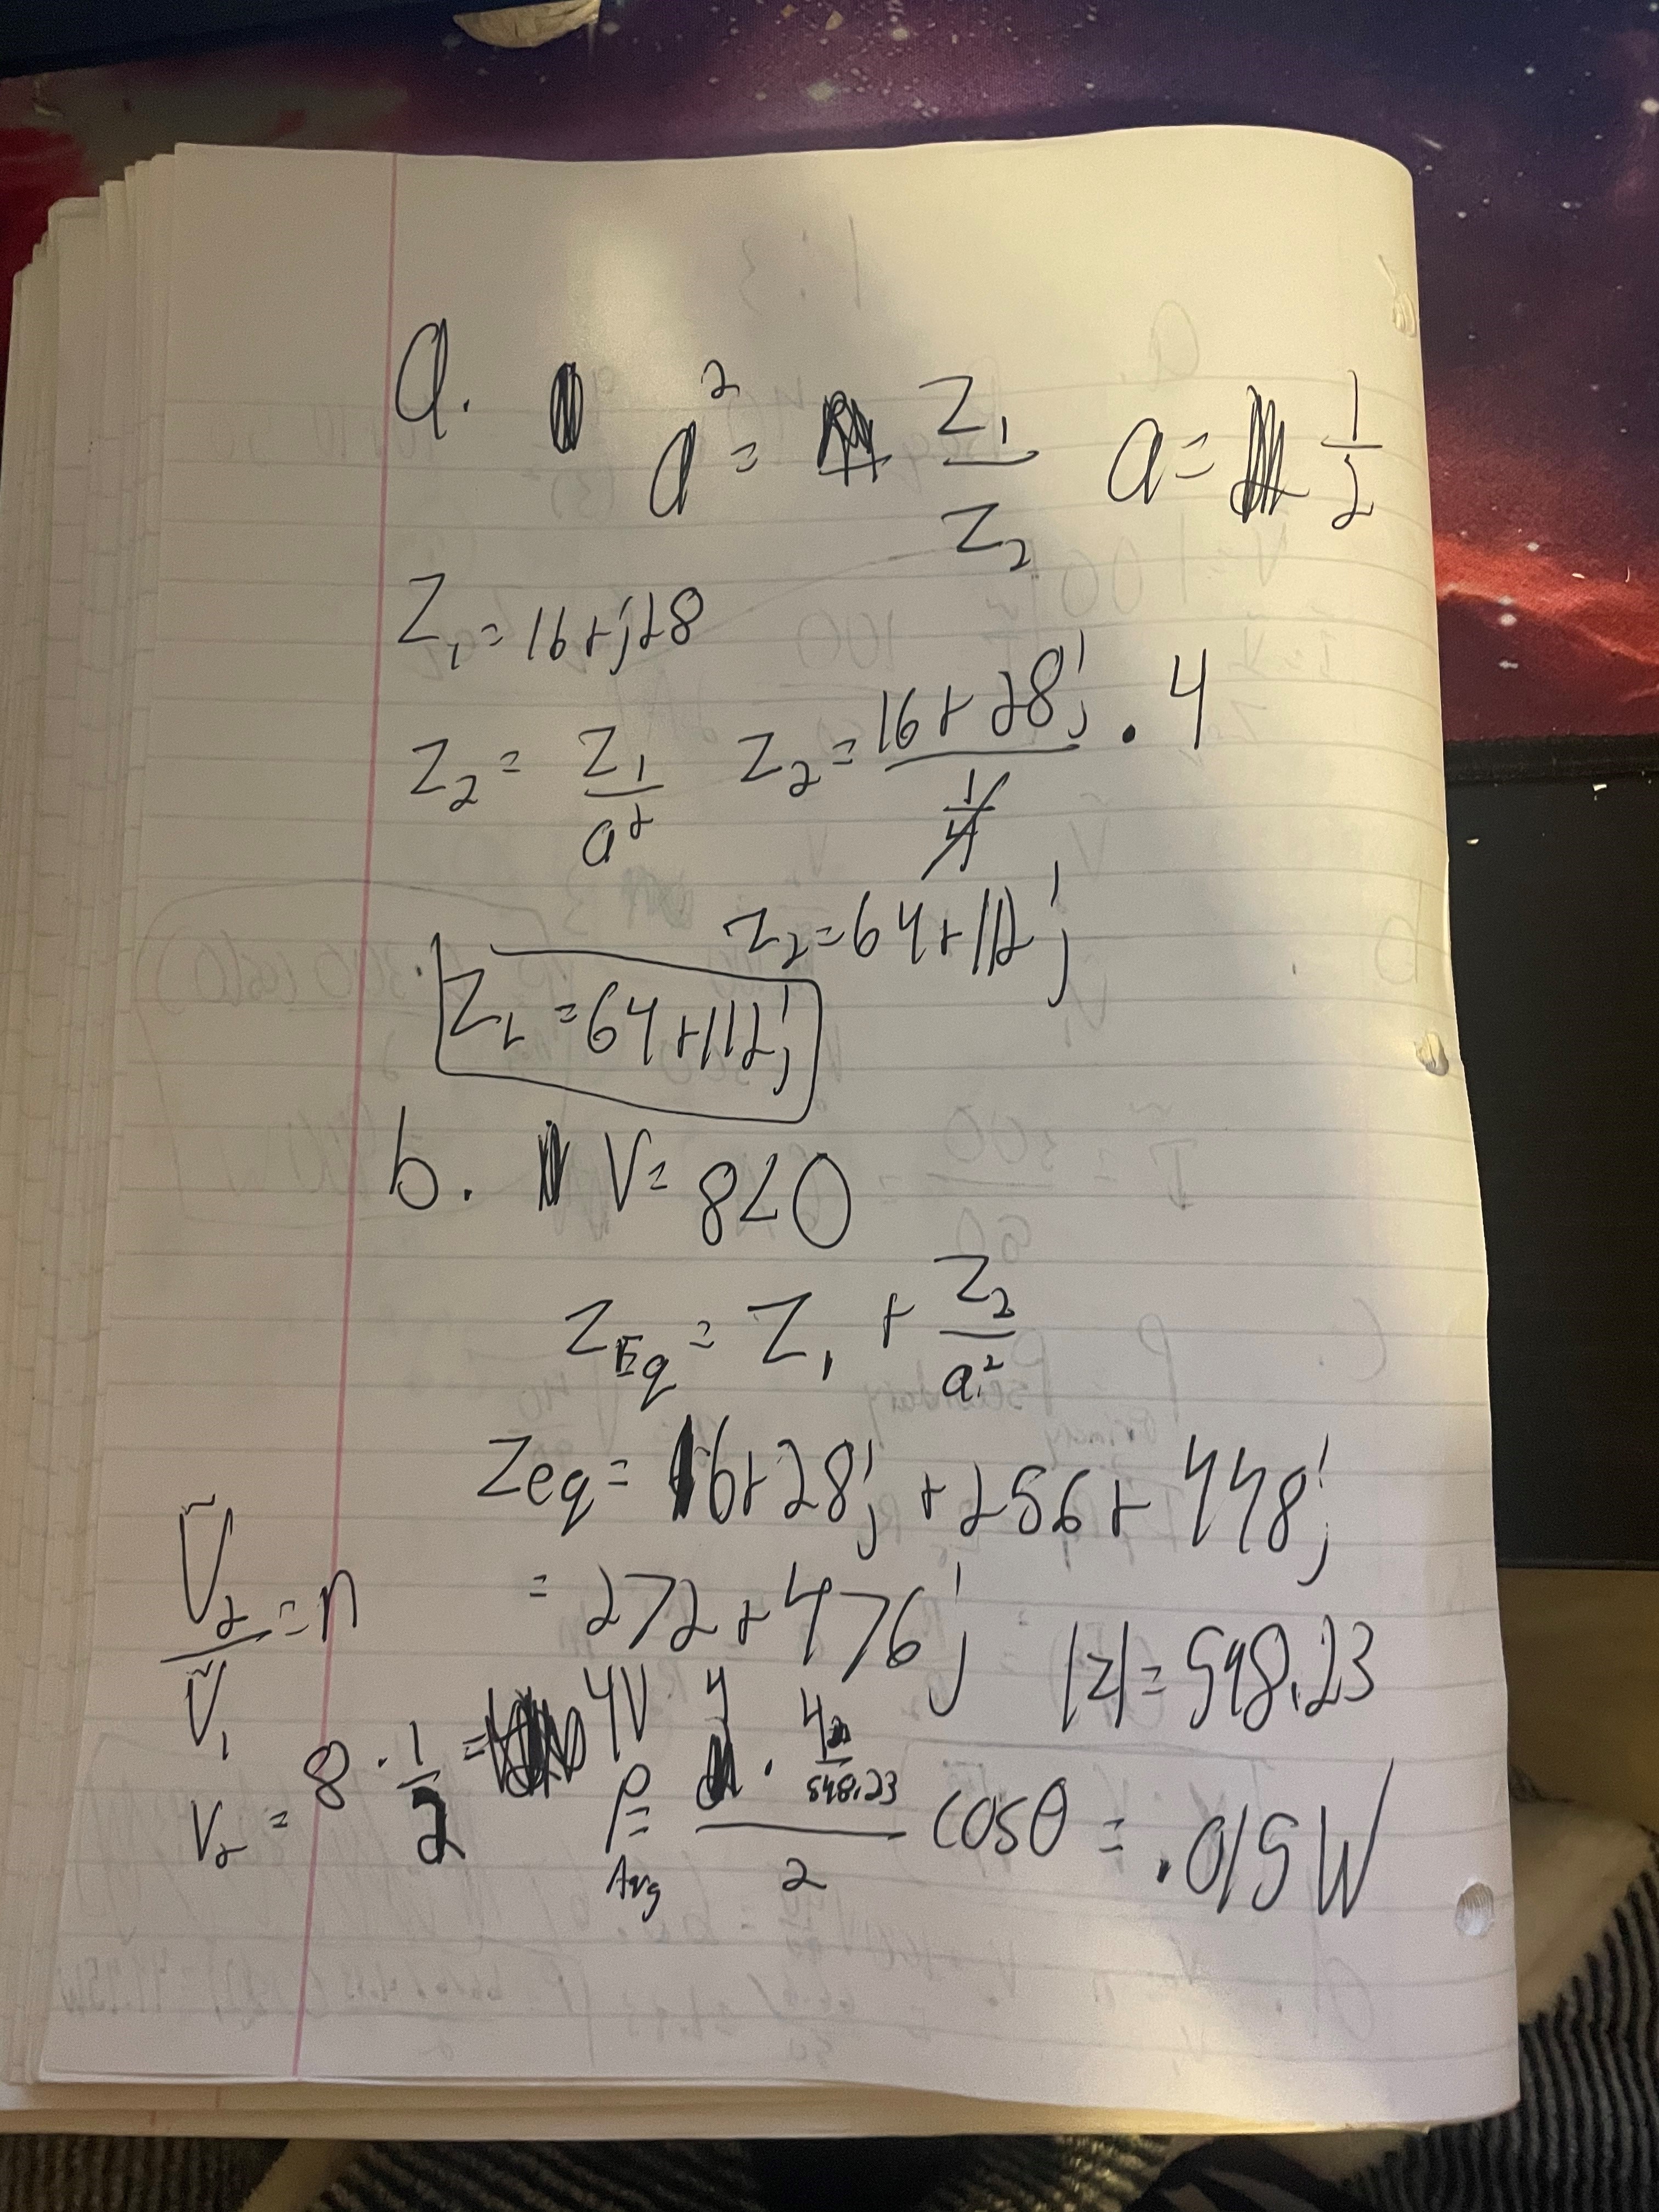 a. a² = Z₁/Z₂ a = 1/2
Z₁ = 16+j28
Z₂ = Z₁/a² Z₂ = (16+28j)/(1/4) · 4
Z₂ = 64+112j
Z_L = 64+112j
b. V = 8∠0
Z_Eq = Z₁ + Z₂/a²
Zeq = 16+28j + 256+448j
= 272+476j |z| = 548.23
Ṽ₂/Ṽ₁ = n
V₂ = 8 · 1/2 = 4V
P_Avg = (4 · 4/548.23)/2 cosθ = .015W